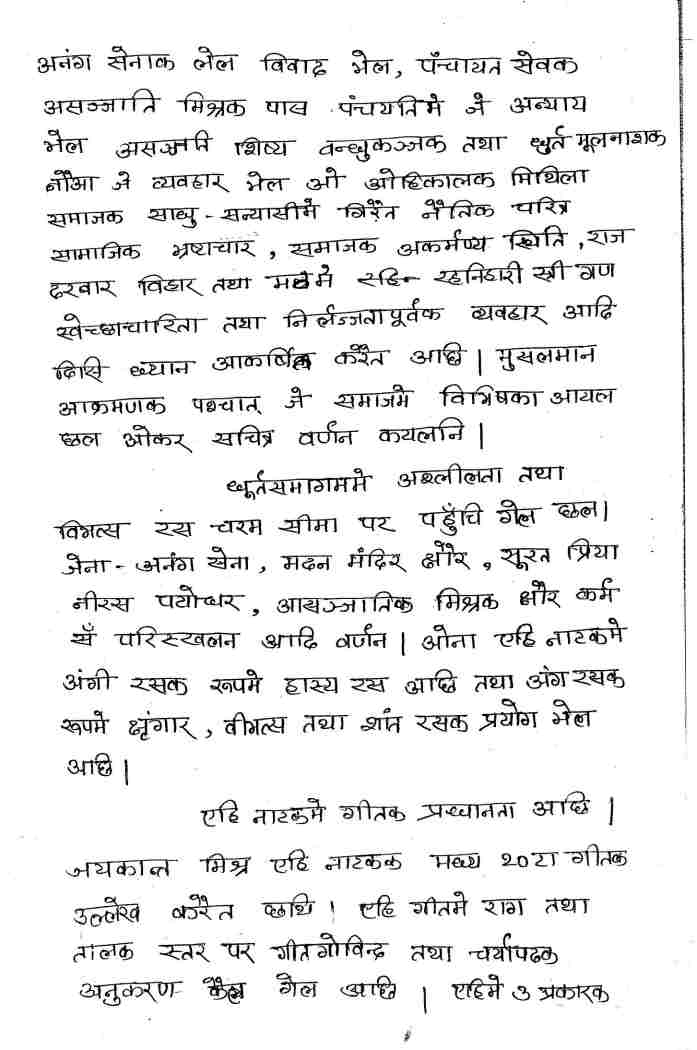 अनंग सेनाक लेल विवाद भेल, पंचायत सेवक
असञ्जाति मिश्रक पास पंचयतिमे जे अन्याय
भेल असञ्जाति शिष्य वन्धुकञ्जक तथा धुर्त मूलनाशक
नौआ जे व्यवहार भेल ओ ओहिकालक मिथिला
समाजक साधु-सन्यासीमे गिरैत नैतिक चरित्र
सामाजिक भ्रष्टाचार, समाजक अकर्मण्य स्थिति, राज
दरवार विहार तथा मठमे रहनिहारी स्त्री गण
स्वेच्छाचारिता तथा निर्लज्जतापूर्वक व्यवहार आदि
दिसि ध्यान आकर्षित करैत अछि | मुसलमान
आक्रमणक पश्चात् जे समाजमे विभिषिका आयल
छल ओकर सचित्र वर्णन कयलनि |
धूर्तसमागममे अश्लीलता तथा
विभत्स रस चरम सीमा पर पहुँचि गेल छल।
जेना-अनंग सेना, मदन मंदिर क्षौर, सूरत प्रिया
नीरस पयोधर, आसञ्जातिक मिश्रक क्षौर कर्म
सँ परिस्खलन आदि वर्णन | ओना एहि नाटकमे
अंगी रसक रूपमे हास्य रस अछि तथा अंग रसक
रूपमे श्रृंगार, वीभत्स तथा शांत रसक प्रयोग भेल
अछि |
एहि नाटकमे गीतक प्रधानता अछि |
जयकान्त मिश्र एहि नाटकक मध्य २०टा गीतक
उल्लेख करैत छथि। एहि गीतमे राग तथा
तालक स्तर पर गीतगोविन्द्र तथा चर्यापदक
अनुकरण कैल गेल अछि | एहिमे ३ प्रकारक